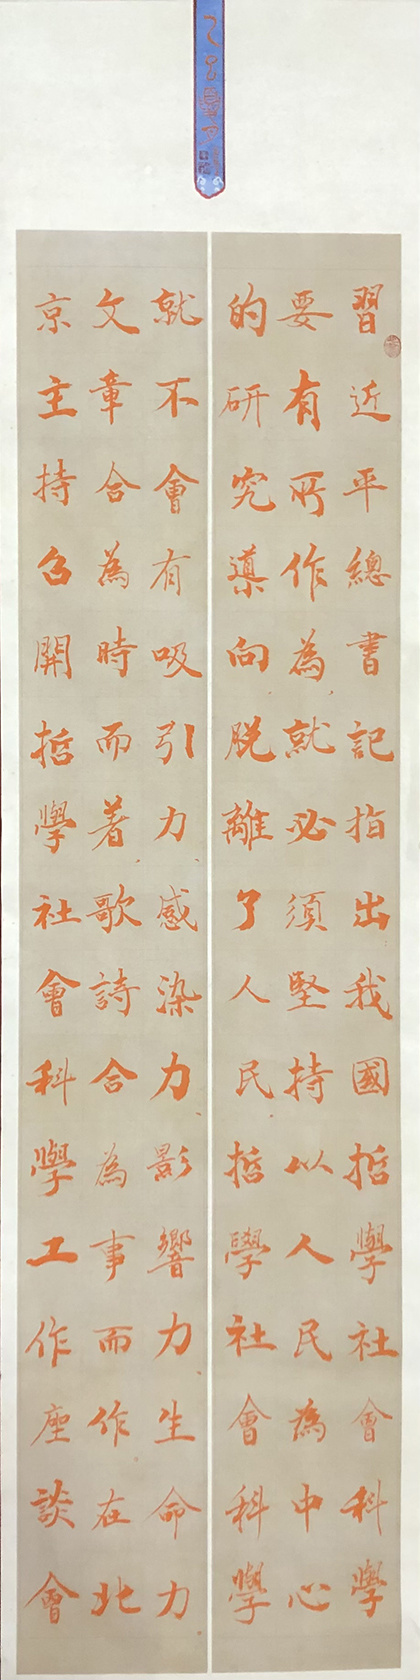 習近平總書記指出我國哲學社會科學
要有所作為就必須堅持以人民為中心
的研究導向脱離了人民哲學社會科學
就不會有吸引力感染力影響力生命力
文章合為時而著歌詩合為事而作在北
京主持召開哲學社會科學工作座談會